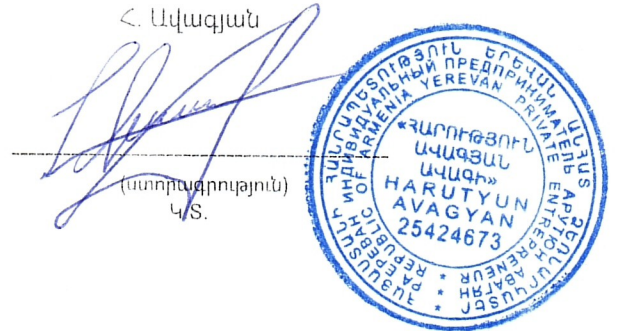 Հ. Ավագյան
(ստորագրություն)
Կ.Տ.
ՀԱՅԱՍՏԱՆԻ ՀԱՆՐԱՊԵՏՈՒԹՅՈՒՆ ԵՐԵՎԱՆ ԱՆՀԱՏ ՁԵՌՆԱՐԿԱՏԵՐ
РА ЕРЕВАН ИНДИВИДУАЛЬНЫЙ ПРЕДПРИНИМАТЕЛЬ АРУТЮН АВАГЯН
REPUBLIC OF ARMENIA YEREVAN PRIVATE ENTREPRENEUR
«ՀԱՐՈՒԹՅՈՒՆ
ԱՎԱԳՅԱՆ
ԱՎԱԳԻ»
HARUTYUN
AVAGYAN
25424673